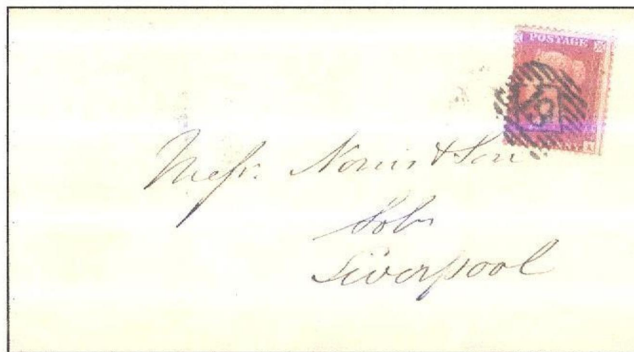 POSTAGE
Messrs. Norris & Son
Solrs
Liverpool